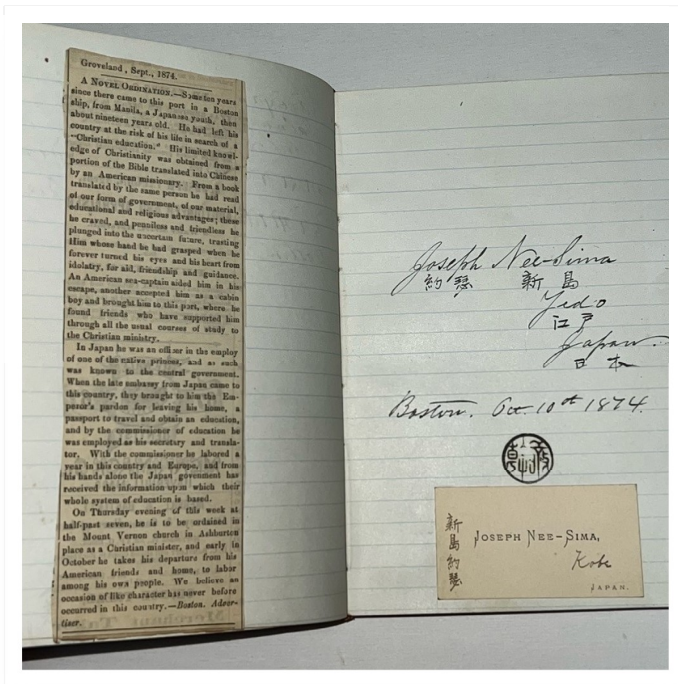 Groveland, Sept., 1874.
A NOVEL ORDINATION.—Some ten years
since there came to this port in a Boston
ship, from Manila, a Japanese youth, then
about nineteen years old. He had left his
country at the risk of his life in search of a
"Christian education." His limited knowl-
edge of Christianity was obtained from a
portion of the Bible translated into Chinese
by an American missionary. From a book
translated by the same person he had read
of our form of government, of our material,
educational and religious advantages; these
he craved, and penniless and friendless he
plunged into the uncertain future, trusting
Him whose hand he had grasped when he
forever turned his eyes and his heart from
idolatry, for aid, friendship and guidance.
An American sea-captain aided him in his
escape, another accepted him as a cabin
boy and brought him to this port, where he
found friends who have supported him
through all the usual courses of study to
the Christian ministry.
In Japan he was an officer in the employ
of one of the native princes, and as such
was known to the central government.
When the late embassy from Japan came to
this country, they brought to him the Em-
peror's pardon for leaving his home, a
passport to travel and obtain an education,
and by the commissioner of education he
was employed as his secretary and transla-
tor. With the commissioner he labored a
year in this country and Europe, and from
his hands alone the Japan govenment has
received the information upon which their
whole system of education is based.
On Thursday evening of this week at
half-past seven, he is to be ordained in
the Mount Vernon church in Ashburton
place as a Christian minister, and early in
October he takes his departure from his
American friends and home, to labor
among his own people. We believe an
occasion of like character has never before
occurred in this country.—Boston. Adver-
tiser.
Joseph Nee-Sima
約瑟 新島
Yedo
江戸
Japan.
日本
Boston. Oct. 10th 1874.
新島約瑟
JOSEPH NEE-SIMA,
Kobe
JAPAN.